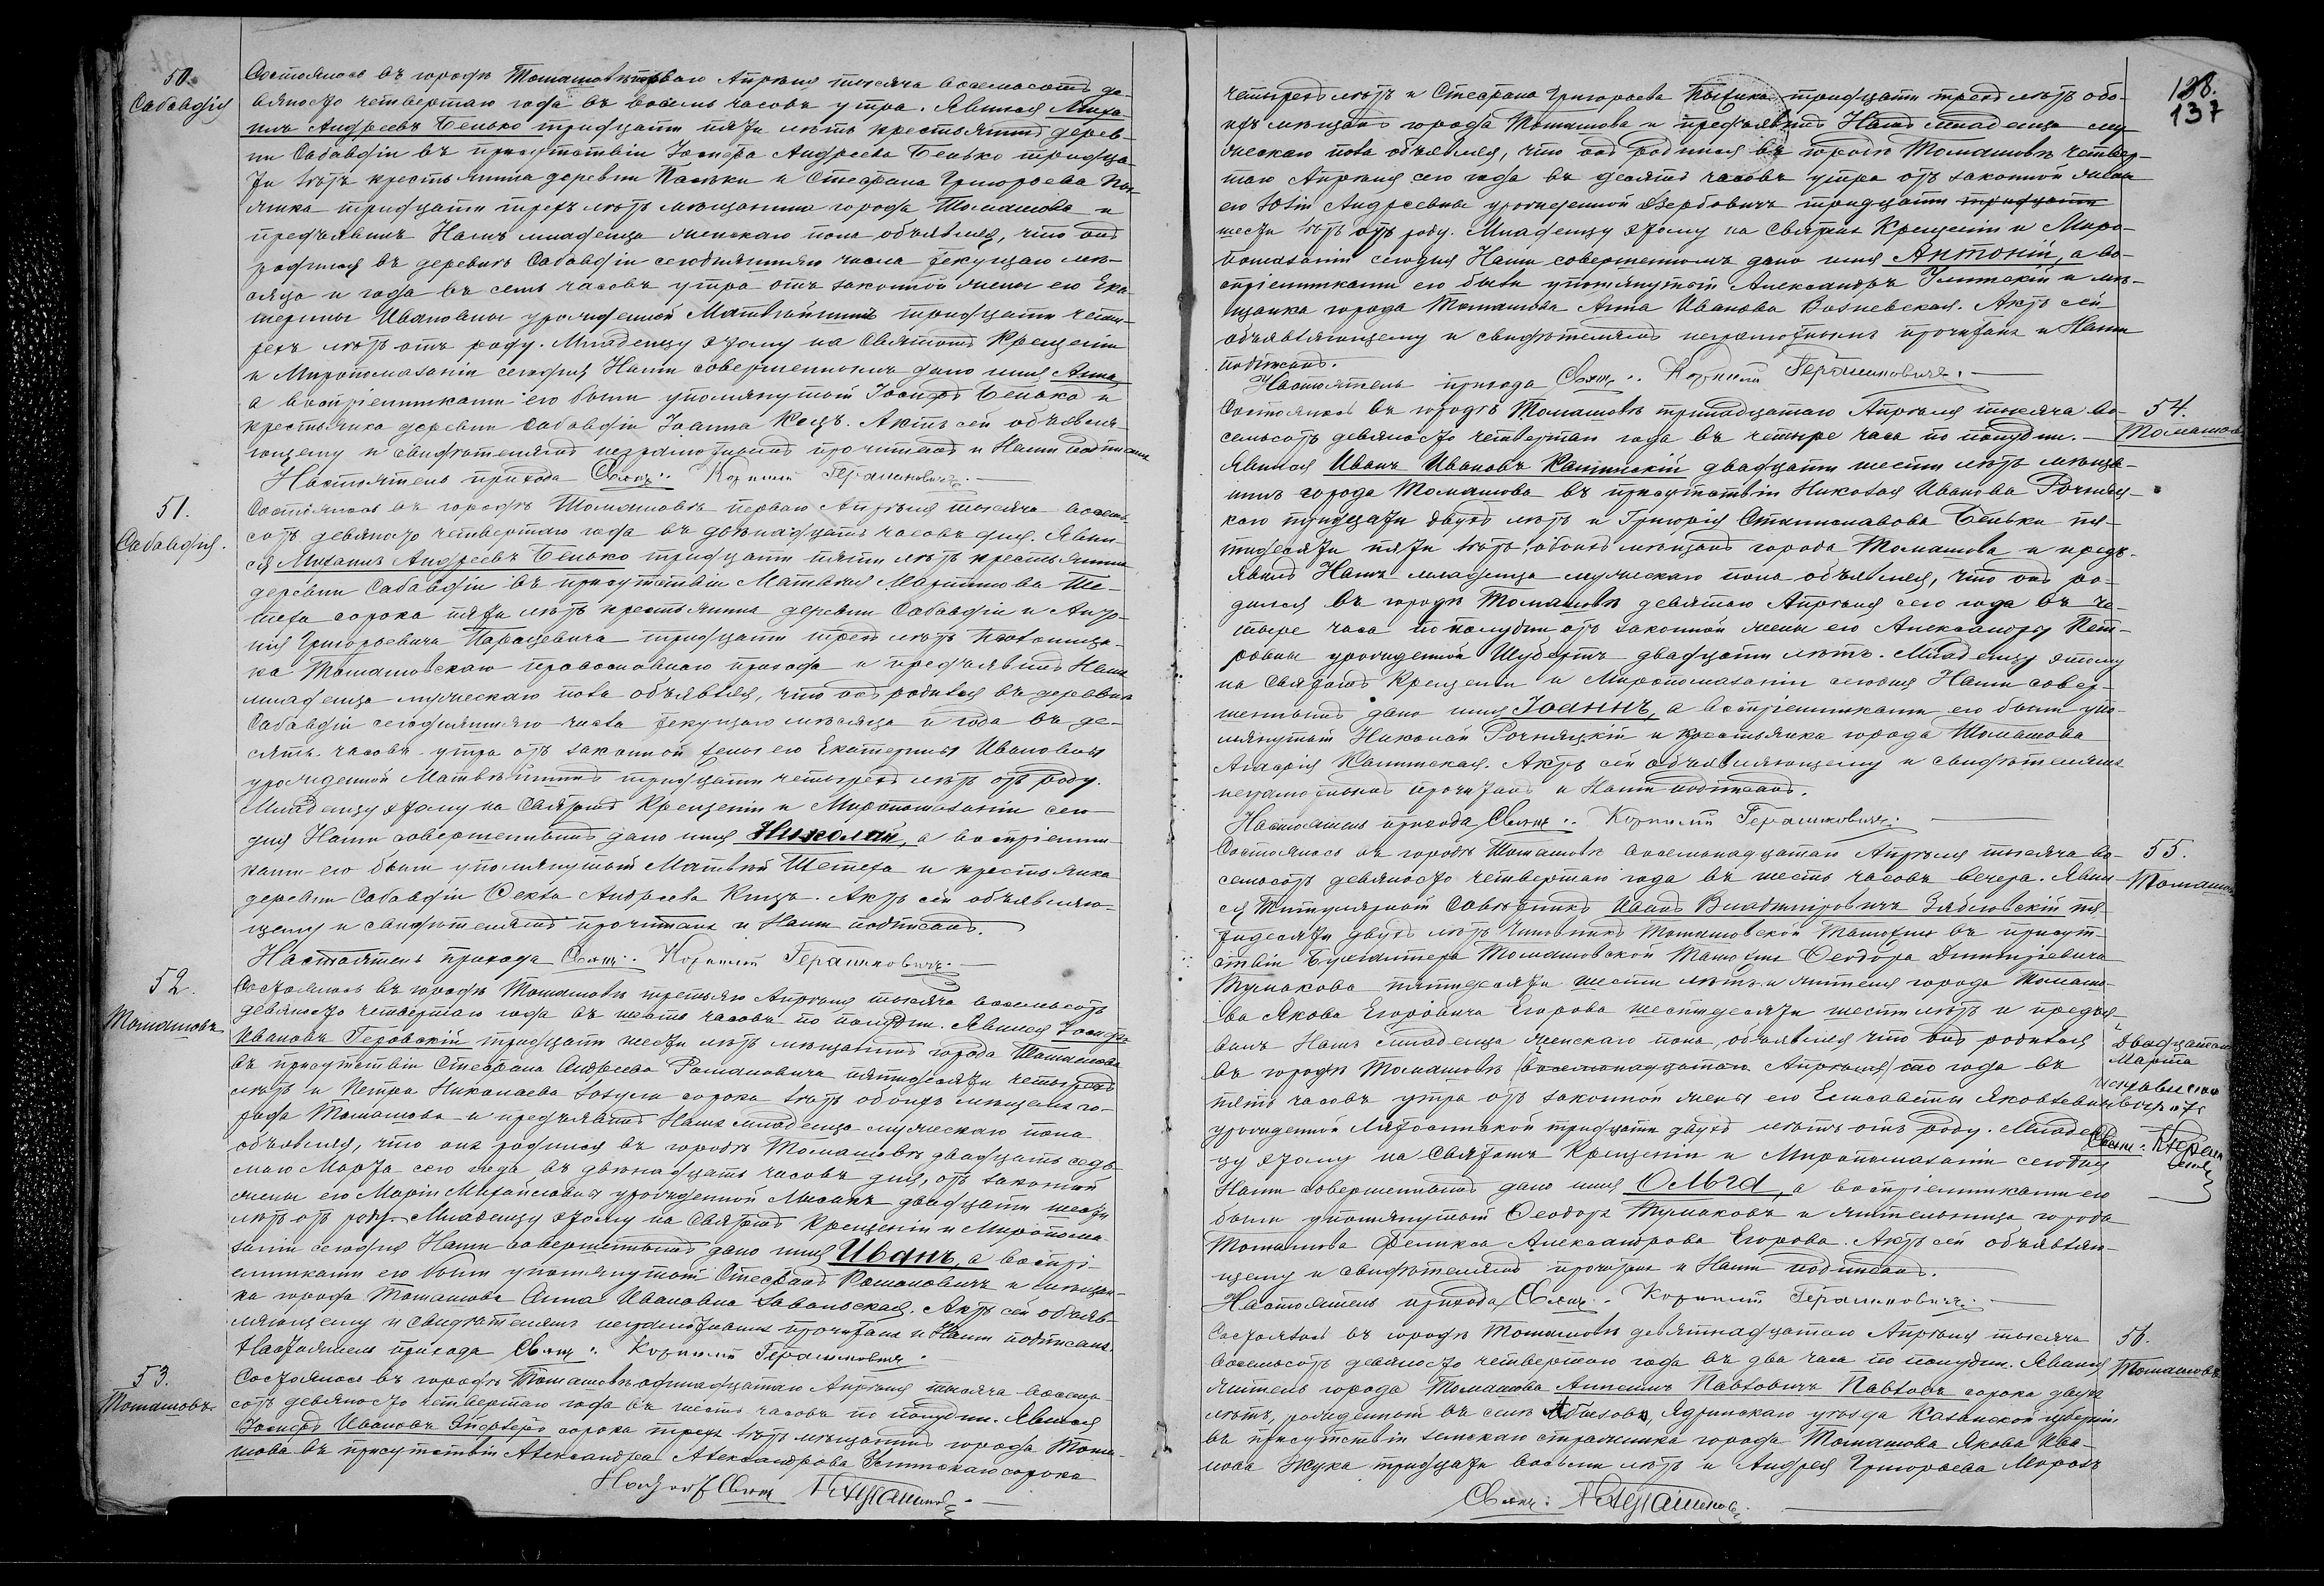 50.
Сабавдія
Состоялось въ городѣ Томашовѣ перваго Апрѣля тысяча восемьсотъ де-
вяносто четвертаго года въ восемь часовъ утра. Явился Миха-
илъ Андреевъ Бенько тридцати пяти лѣтъ крестьянинъ дерев-
ни Сабавдіи въ присутствіи Іосифа Андреева Бенько тридца-
ти лѣтъ крестьянина деревни Пасѣки и Стефана Григорьева
тридцати трехъ лѣтъ мѣщанина города Томашова и
предъявилъ Намъ младенца женскаго пола объявляя, что онъ
родился въ деревнѣ Сабавдіи сегодняшняго числа текущаго мѣ-
сяца и года въ семь часовъ утра отъ законной жены его Ека-
терины Ивановны урожденной тридцати четы-
рехъ лѣтъ отъ роду. Младенцу этому на Святомъ Крещеніи
и Миропомазаніи сегодня Нами совершенномъ дано имя Анна,
а воспріемниками его были упомянутый Іосифъ Бенько и
крестьянка деревни Сабавдіи Іоанна Кецъ. Актъ сей объявля-
ющему и свидѣтелямъ неграмотнымъ прочитанъ и Нами подписанъ
Настоятель прихода Свящ: Корнилій Герасимовичъ.
51.
Сабавдія.
Состоялось въ городѣ Томашовѣ перваго Апрѣля тысяча восемь-
сотъ девяносто четвертаго года въ двѣнадцать часовъ дня. Явил-
ся Михаилъ Андреевъ Бенько тридцати пяти лѣтъ крестьянинъ
деревни Сабавдіи въ присутствіи Матвѣя Мартинова Ше-
сорока пяти лѣтъ крестьянина деревни Сабавдіи и Анто-
нія Григорьевича тридцати трехъ лѣтъ псаломщи-
ка Томашовскаго православнаго прихода и предъявилъ Намъ
младенца мужескаго пола объявляя, что онъ родился въ деревнѣ
Сабавдіи сегодняшняго числа текущаго мѣсяца и года въ де-
сять часовъ утра отъ законной жены его Екатерины Ивановны
урожденной тридцати четырехъ лѣтъ отъ роду.
Младенцу этому на Святомъ Крещеніи и Миропомазаніи сего-
дня Нами совершенномъ дано имя Николай, а воспріемни-
ками его были упомянутый Матвѣй и крестьянка
деревни Сабавдіи Текла Андреева Актъ сей объявляю-
щему и свидѣтелямъ прочитанъ и Нами подписанъ.
Настоятель прихода Свящ: Корнилій Герасимовичъ.
52.
Томашовъ
Состоялось въ городѣ Томашовѣ третьяго Апрѣля тысяча восемьсотъ
девяносто четвертаго года въ шесть часовъ по полудни. Явился Іосифъ
Ивановъ Геровскій тридцати шести лѣтъ мѣщанинъ города Томашова
въ присутствіи Стефана Андреева Романовича пятидесяти четырехъ
лѣтъ и Петра Николаева сорока лѣтъ обоихъ мѣщанъ го-
рода Томашова и предъявилъ Намъ младенца мужескаго пола
объявляя, что онъ родился въ городѣ Томашовѣ двадцать седь-
маго Марта сего года въ двѣнадцать часовъ дня, отъ законной
жены его Маріи Михайловны урожденной двадцати шести
лѣтъ отъ роду. Младенцу этому на Святомъ Крещеніи и Миропома-
заніи сегодня Нами совершенномъ дано имя Иванъ, а воспрі-
емниками его были упомянутый Стефанъ Романовичъ и мѣщан-
ка города Томашова Анна Ивановна Завольская. Актъ сей объяв-
ляющему и свидѣтелямъ неграмотнымъ прочитанъ и Нами подписанъ.
Настоятель прихода Свящ: Корнилій Герасимовичъ.
53.
Томашовъ
Состоялось въ городѣ Томашовѣ одинадцатаго Апрѣля тысяча восемь-
сотъ девяносто четвертаго года въ шесть часовъ по полудни. Явился
Іосифъ Ивановъ сорока трехъ лѣтъ мѣщанинъ города Тома-
шова въ присутствіи Александра Александрова сорока
Свящ
138.
137
четырехъ лѣтъ и Стефана Григорьева тридцати трехъ лѣтъ обо-
ихъ мѣщанъ города Томашова и предъявилъ Намъ младенца му-
жескаго пола объявляя, что онъ родился въ городѣ Томашовѣ четвер-
таго Апрѣля сего года въ десять часовъ утра отъ законной жены
его Юліи Андреевны урожденной Вербовичъ тридцати тридцати
шести лѣтъ отъ роду. Младенцу этому на Святомъ Крещеніи и Миро-
помазаніи сегодня Нами совершенномъ дано имя Антоній, а во-
спріемниками его были упомянутый Александръ и мѣ-
щанка города Томашова Анна Иванова Возневская. Актъ сей
объявляющему и свидѣтелямъ неграмотнымъ прочитанъ и Нами
подписанъ.
Настоятель прихода Свящ: Корнилій Герасимовичъ.
54.
Томашовъ
Состоялось въ городѣ Томашовѣ тринадцатаго Апрѣля тысяча во-
семьсотъ девяносто четвертаго года въ четыре часа по полудни.
Явился Иванъ Ивановъ Калинскій двадцати шести лѣтъ мѣща-
нинъ города Томашова въ присутствіи Николая Иванова Рочняц-
каго тридцати двухъ лѣтъ и Григорія Станиславова Бенька пя-
тидесяти пяти лѣтъ обоихъ мѣщанъ города Томашова и предъ-
явилъ Намъ младенца мужескаго пола объявляя, что онъ ро-
дился въ городѣ Томашовѣ девятаго Апрѣля сего года въ че-
тыре часа по полудни отъ законной жены его Александры Пет-
ровны урожденной Шубертъ двадцати лѣтъ. Младенцу этому
на Святомъ Крещеніи и Миропомазаніи сегодня Нами совер-
шенномъ дано имя Іоаннъ, а воспріемниками его были упо-
мянутый Николай Рочняцкій и крестьянка города Томашова
Калинская. Актъ сей объявляющему и свидѣтелямъ
неграмотнымъ прочитанъ и Нами подписанъ.
Настоятель прихода Свящ: Корнилій Герасимовичъ.
55.
Томашовъ
Состоялось въ городѣ Томашовѣ восемнадцатаго Апрѣля тысяча во-
семьсотъ девяносто четвертаго года въ шесть часовъ вечера. Явил-
ся Титулярный Совѣтникъ Иванъ Владиміровичъ Зябловскій пя-
тидесяти двухъ лѣтъ Чиновникъ Томашовской Таможни въ присут-
ствіи Бухгалтера Томашовской Таможни Ѳеодора Дмитріевича
Тумакова пятидесяти шести лѣтъ и жителя города Томашо-
ва Якова Егоровича Егорова шестидесяти шести лѣтъ и предъя-
вилъ Намъ младенца женскаго пола, объявляя что онъ родился
въ городѣ Томашовѣ (восемнадцатаго Апрѣля) сего года въ
пять часовъ утра отъ законной жены его Елисаветы Яковлевны
урожденной тридцати двухъ лѣтъ отъ роду. Младен-
цу этому на Святомъ Крещеніи и Миропомазаніи сегодня
Нами совершенномъ дано имя Ольга, а воспріемниками его
были упомянутый Ѳеодоръ Тумаковъ и жительница города
Томашова Фелика Александрова Егорова. Актъ сей объявляю-
щему и свидѣтелямъ прочитанъ и Нами подписанъ.
Настоятель прихода, Свящ: Корнилій Герасимовичъ.
Двадцатаго
Марта
Свящ:
56.
Томашовъ
Состоялось въ городѣ Томашовѣ девятнадцатаго Апрѣля тысяча
восемьсотъ девяносто четвертаго года въ два часа по полудни. Явился
житель города Томашова Павловичъ Павловъ сорока двухъ
лѣтъ, рожденный въ селѣ Ядринскаго уѣзда Казанской губерніи
въ присутствіи земскаго стражника города Томашова Якова Ива-
нова Жука тридцати восьми лѣтъ и Андрея Григорьева Морозъ
Свящ: